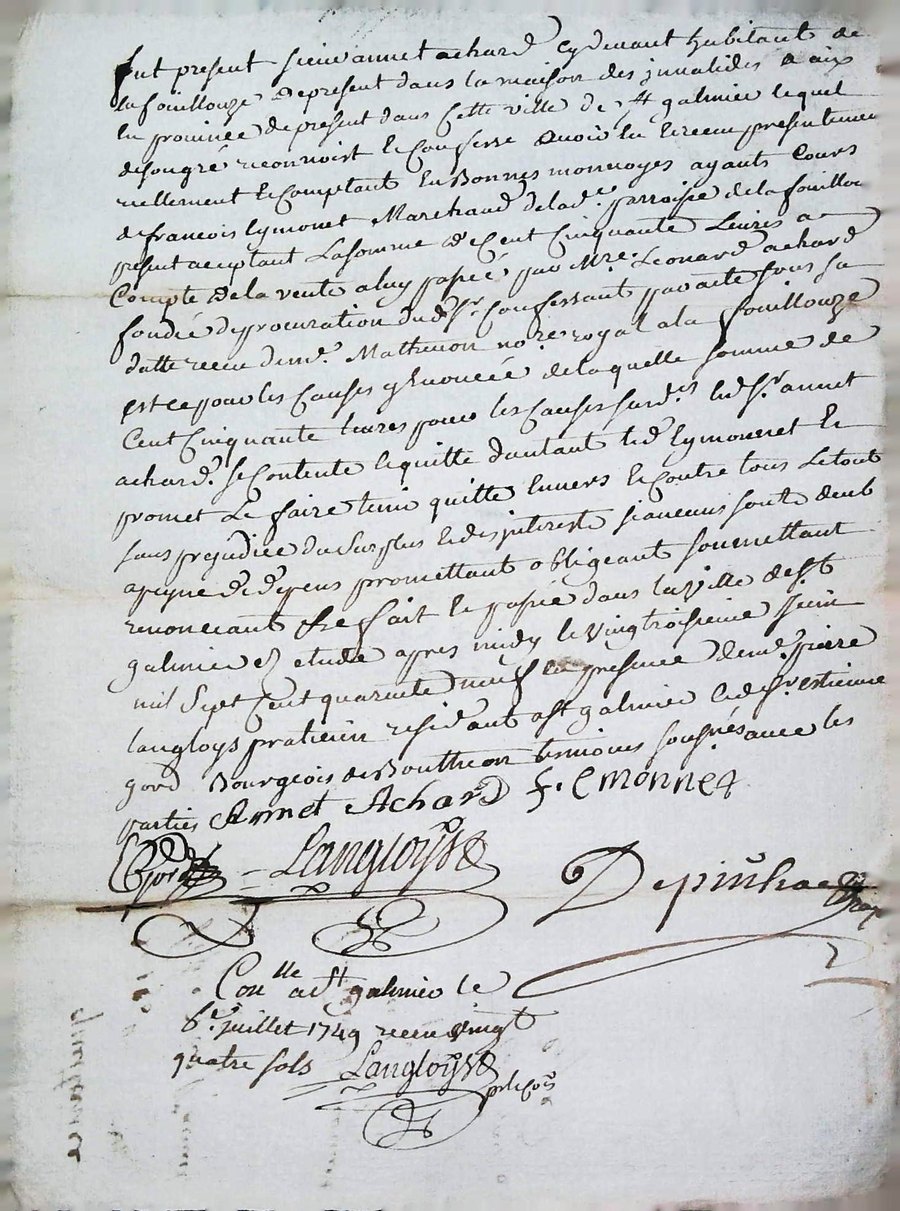 fut present sieur annet achard cydevant habitant de
la fouillouze de present dans la maison des jnvalides d aix
en province de present dans Cette ville de st galmier lequel
de son gré reconnoist et Confesse avoir eu et receu presentement
reellement et Comptant en Bonnes monnoyes ayants Cours
de francois eymonet Marchand de lad. parroisse de la fouillou
present aceptant La somme de Cent Cinquante Livres a
Compte de la vente a luy passée par Mre. Leonard achard
fondé de procuration dud. Sr. Confessant par acte sous sa
datte receu de me. Matheuon no.re royal a la fouillouze
est ce pour les Causes y Enoncée de laquelle somme de
Cent Cinquante livres pour les Causes susd.es led. Sr. annet
achard. se Contente et quitte d'autant led. eymonnet et
promet Le faire tenir quitte Envers et Contre tous Le tout
sans prejudice du Surplus et des jnterests si aucuns sont deub
a peyne de d.epens promettant obligeant soumettant
renoncant &c fait et passée dans la ville de st
galmier & etude apres midy le vingtroisieme juin
mil Sept Cent quarente neuf En presence de me. pierre
langloys praticien residant a st galmier et de Sr. estienne
gord Bourgeois de Boutheon temoins sousignés avec les
parties Annet Achard f. emonnet
Gord Langloys
Depinhac
Con.lle a st galmier le
6e. juillet 1749 receu vingt
quatre sols Langloys
quittance